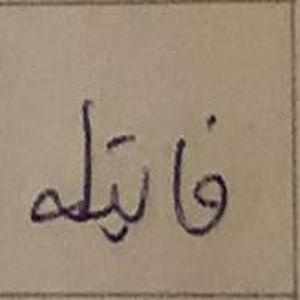 فايتله